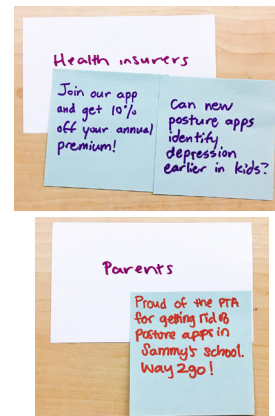 Health insurers
Join our app
and get 10%
off your annual
premium!
Can new
posture apps
identify
depression
earlier in kids?
Parents
Proud of the PTA
for getting rid of
Posture apps in
Sammy's school.
Way 2go!